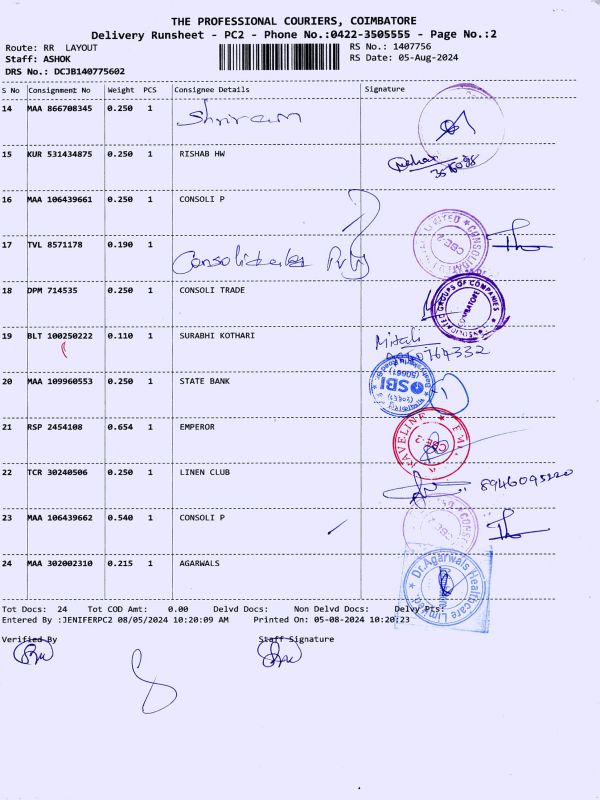 THE PROFESSIONAL COURIERS, COIMBATORE
Delivery Runsheet - PC2 - Phone No.:0422-3505555 - Page No.:2
Route: RR LAYOUT RS No.: 1407756
Staff: ASHOK RS Date: 05-Aug-2024
DRS No.: DCJB140775602
S No Consignment No Weight PCS Consignee Details Signature
14 MAA 866708345 0.250 1 Shriram
15 KUR 531434875 0.250 1 RISHAB HW
16 MAA 106439661 0.250 1 CONSOLI P
17 TVL 8571178 0.190 1
18 DPM 714535 0.250 1 CONSOLI TRADE
GROUPS OF COMPANIES
COIMBATORE
19 BLT 100250222 0.110 1 SURABHI KOTHARI Mitali
20 MAA 109960553 0.250 1 STATE BANK
SBI
21 RSP 2454108 0.654 1 EMPEROR
22 TCR 30240506 0.250 1 LINEN CLUB
23 MAA 106439662 0.540 1 CONSOLI P
24 MAA 302002310 0.215 1 AGARWALS
Dr.Agarwals Healthcare Limited
Tot Docs: 24 Tot COD Amt: 0.00 Delvd Docs: Non Delvd Docs: Delvy Pts:
Entered By :JENIFERPC2 08/05/2024 10:20:09 AM Printed On: 05-08-2024 10:20:23
Verified By Staff Signature